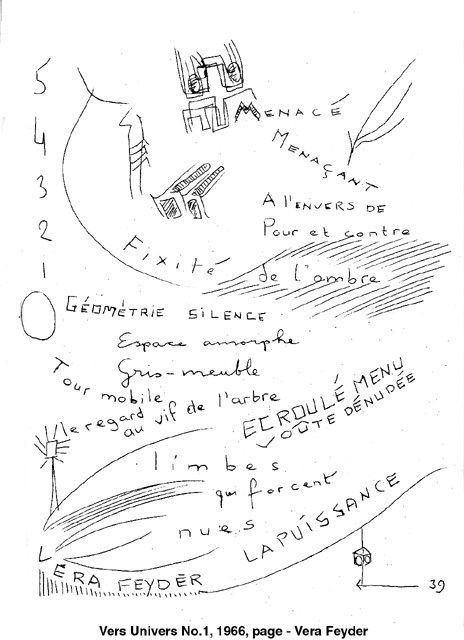 5
4
3
2
1
MENACÉ
MENAÇANT
A l'ENVERS DE
Pour et contre
de l'ombre
Fixité
GÉOMÉTRIE SILENCE
Espace amorphe
Gris-meuble
Tour mobile
le regard au vif de l'arbre
ECROULÉ MENU
VOÛTE DÉNUDÉE
limbes
qui forcent
nues
LA PUISSANCE
VERA FEYDER
39
Vers Univers No.1, 1966, page - Vera Feyder